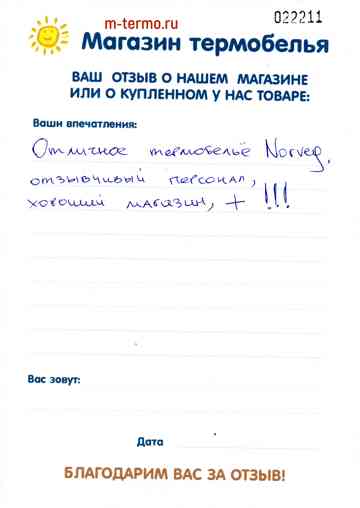 m-termo.ru
022211
Магазин термобелья
ВАШ ОТЗЫВ О НАШЕМ МАГАЗИНЕ
ИЛИ О КУПЛЕННОМ У НАС ТОВАРЕ:
Ваши впечатления:
Отличное термобельё Norveg,
отзывчивый персонал,
хороший магазин, + !!!
Вас зовут:
Дата
БЛАГОДАРИМ ВАС ЗА ОТЗЫВ!